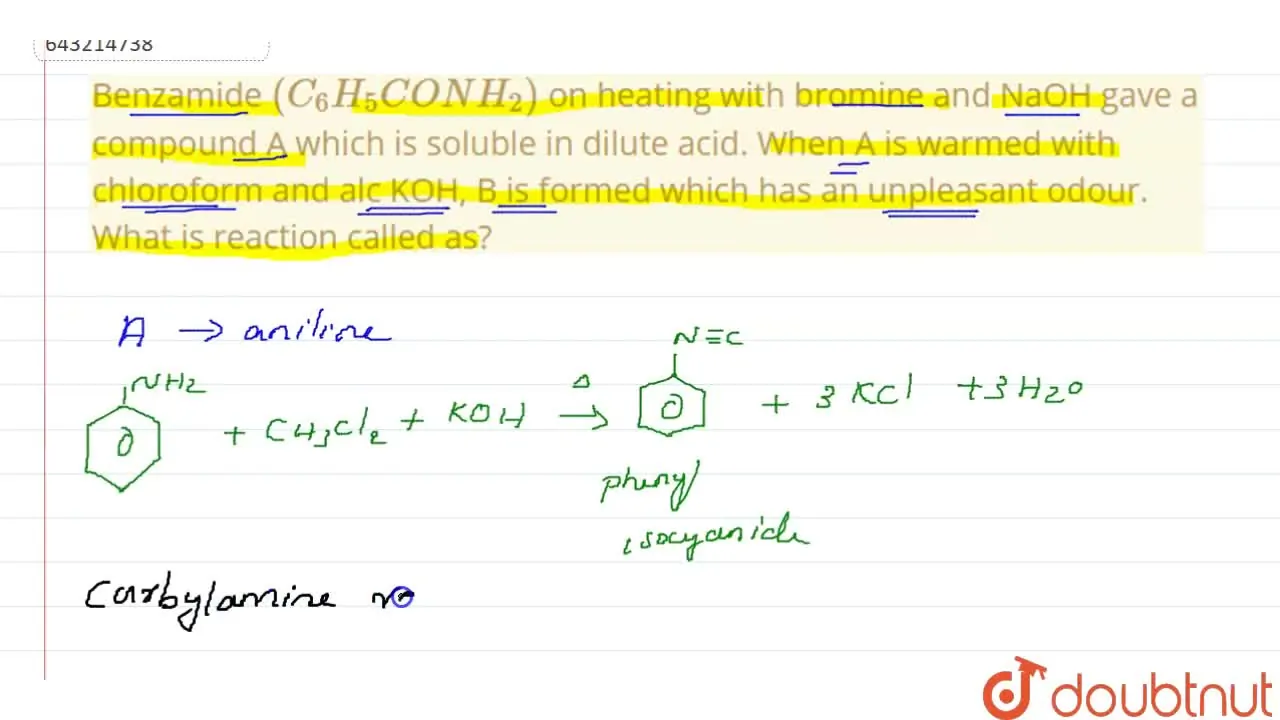 643214738
Benzamide (C₆H₅CONH₂) on heating with bromine and NaOH gave a
compound A which is soluble in dilute acid. When A is warmed with
chloroform and alc KOH, B is formed which has an unpleasant odour.
What is reaction called as?
A → aniline
NH2 + CH3Cl2 + KOH Δ → N≡C + 3 KCl + 3 H2O
phenyl
isocyanide
Carbylamine r
doubtnut